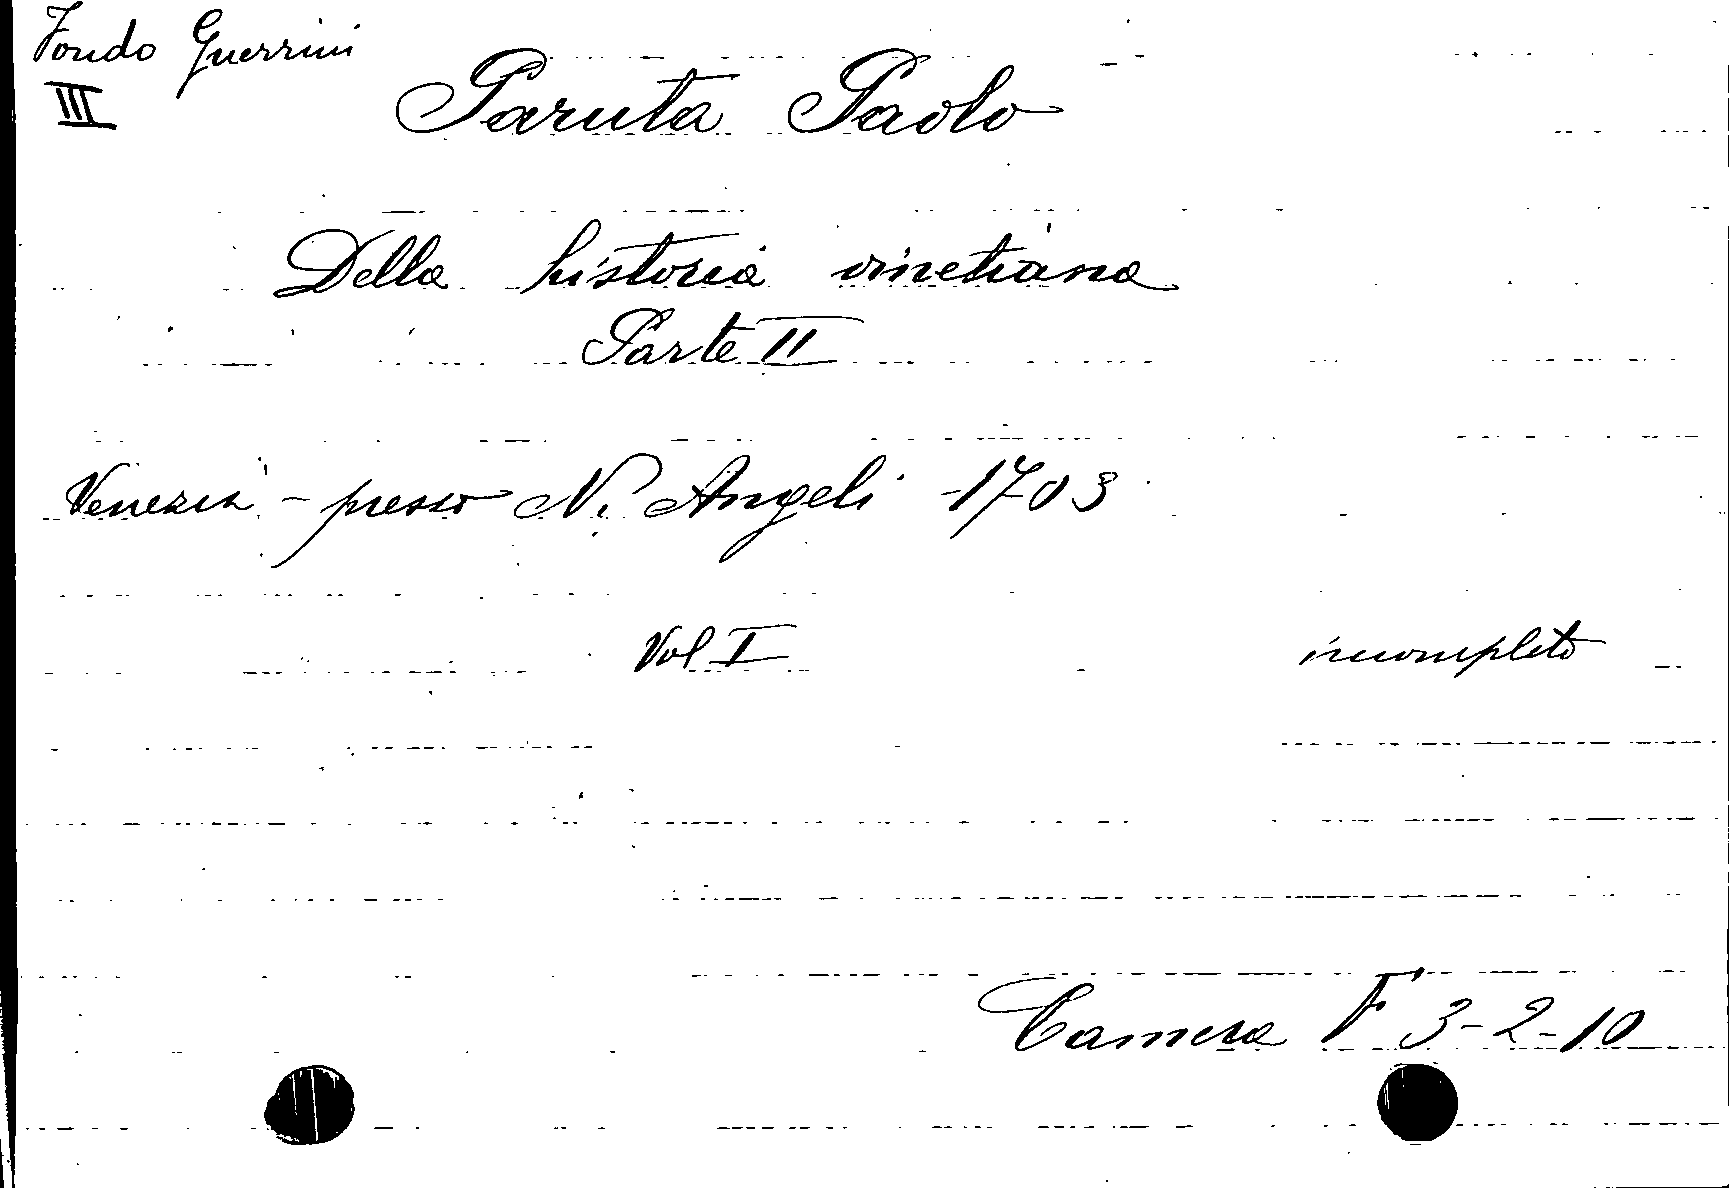 Fondo Guerrini
III
Paruta Paolo
Della historia vinetiana
Parte II
Venezia - presso N. Angeli - 1703
Vol I incompleto
Camera F 3-2-10